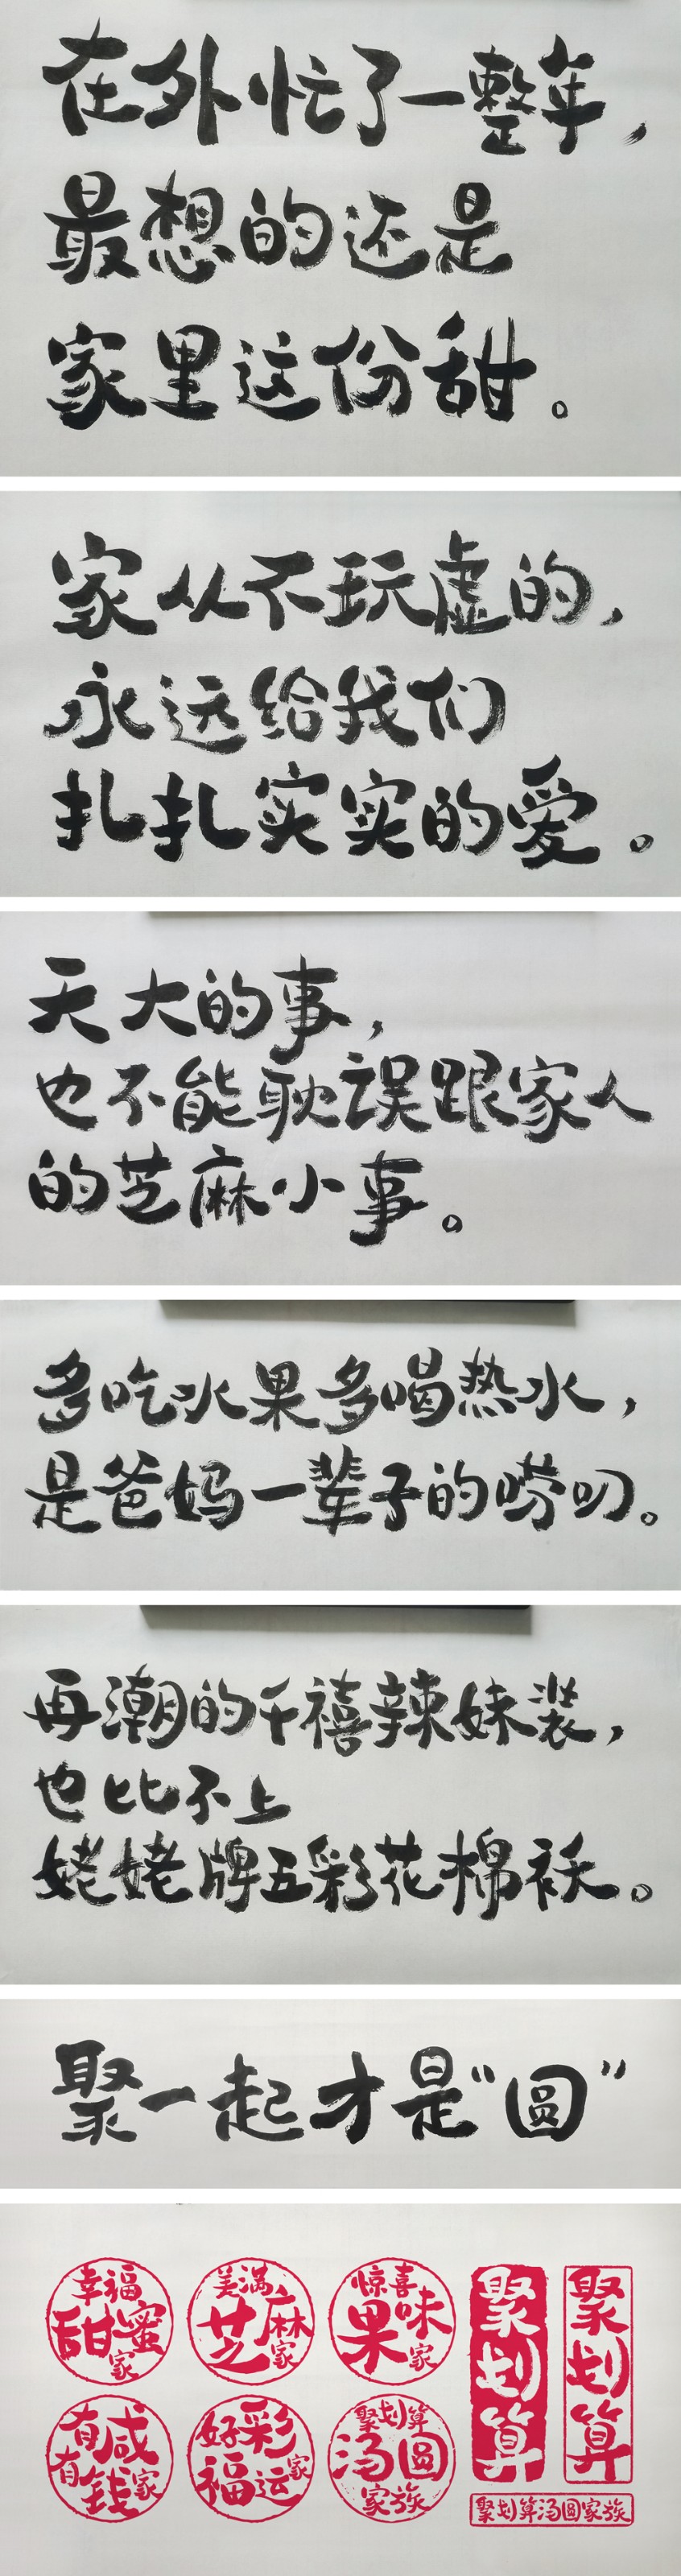 在外忙了一整年，
最想的还是
家里这份甜。
家从不玩虚的，
永远给我们
扎扎实实的爱。
天大的事，
也不能耽误跟家人
的芝麻小事。
多吃水果多喝热水，
是爸妈一辈子的唠叨。
再潮的千禧辣妹装，
也比不上
姥姥牌五彩花棉袄。
聚一起才是“圆”
幸福
甜蜜
家
美满
芝麻
家
惊喜
果味
家
有咸
有钱
家
好彩
福运
家
聚划算
汤圆
家族
聚划算
聚划算
聚划算汤圆家族